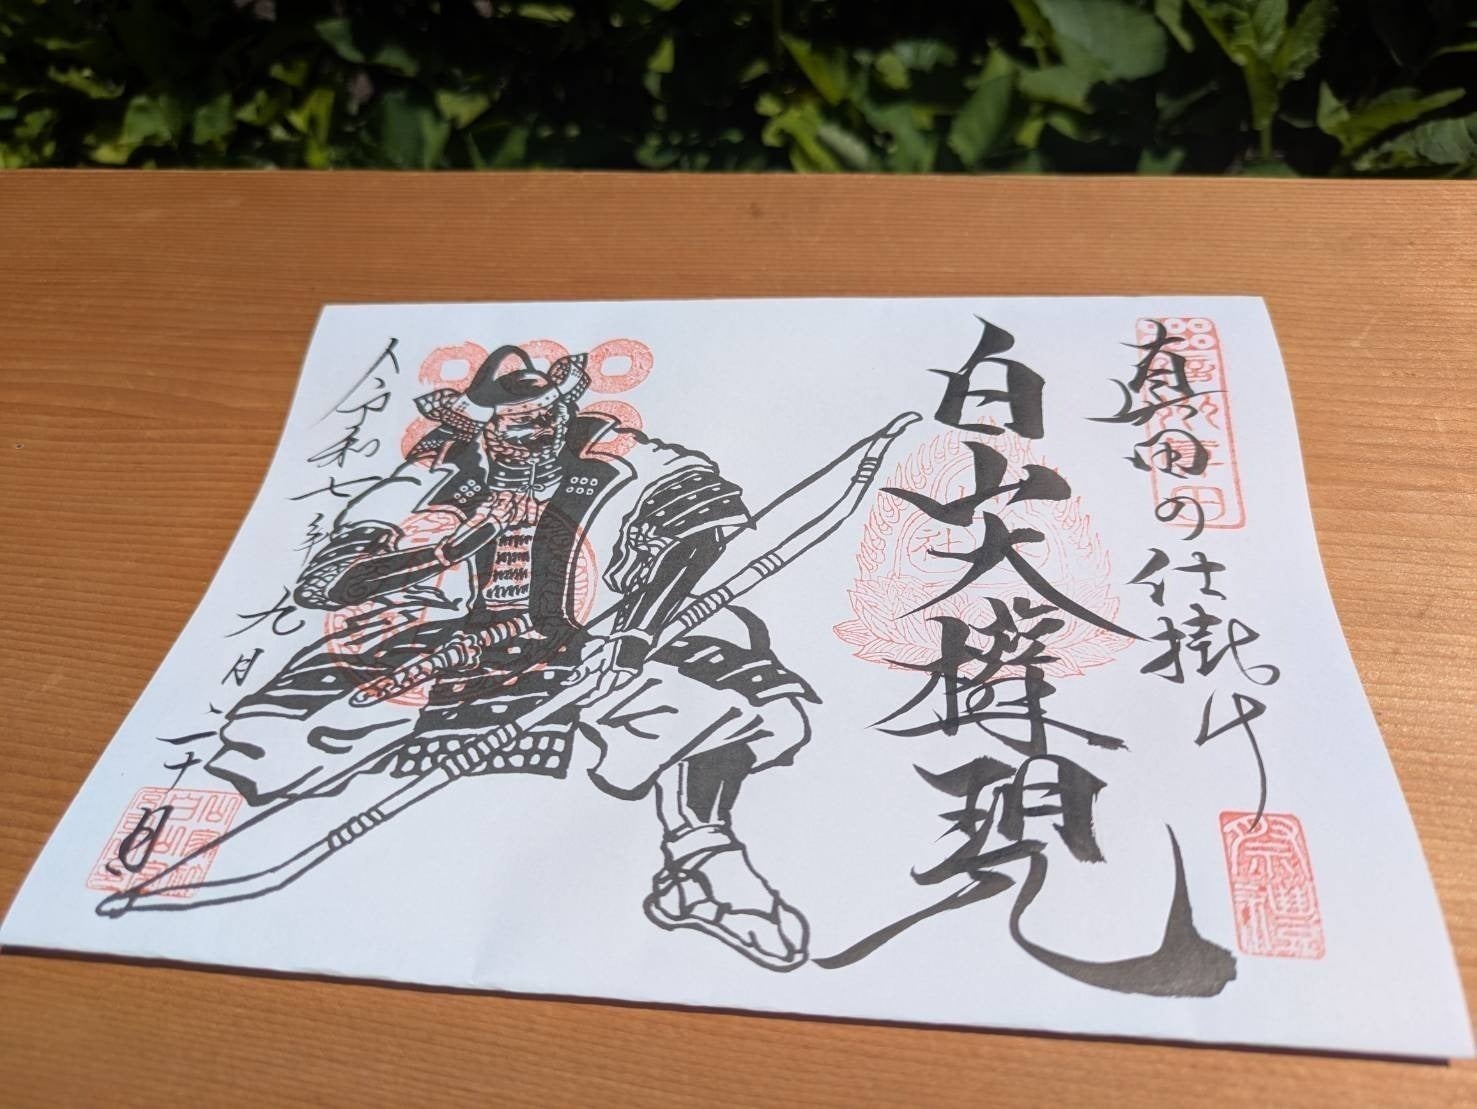 真田の仕掛け
白山大權現
令和七年九月二十日